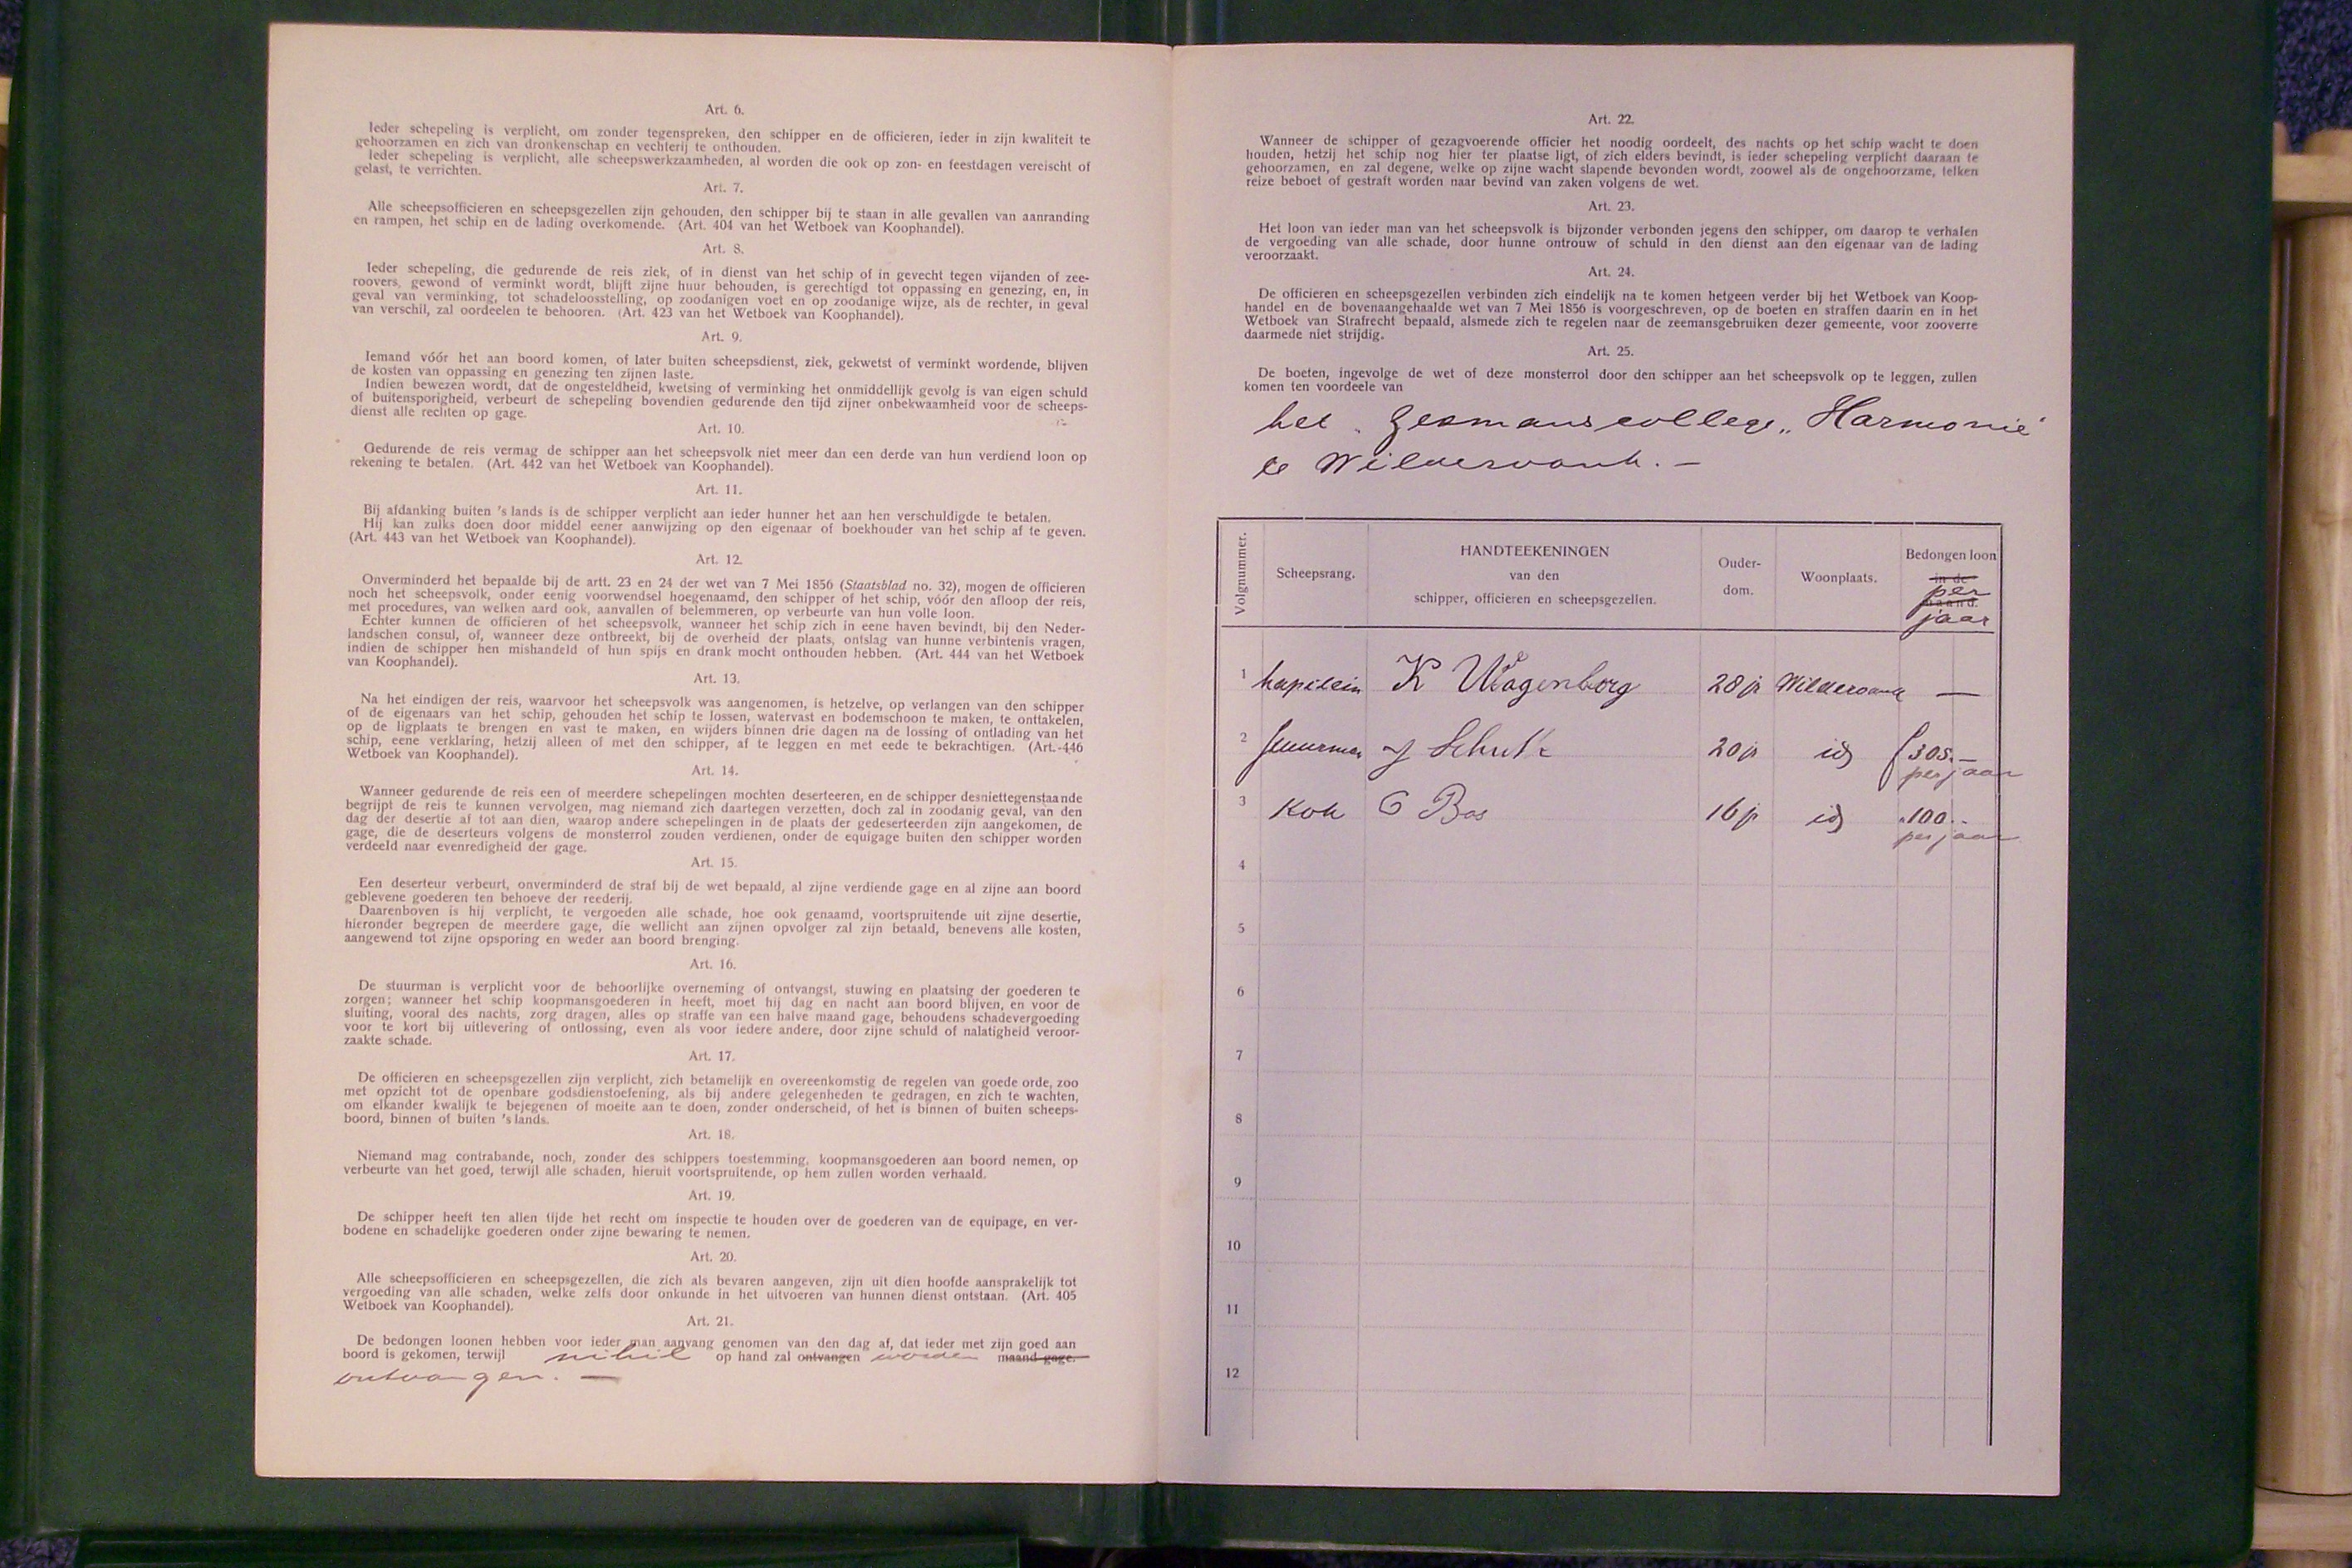 Art. 6.
Ieder schepeling is verplicht, om zonder tegenspreken, den schipper en de officieren, ieder in zijn kwaliteit te
gehoorzamen en zich van dronkenschap en vechterij te onthouden.
Ieder schepeling is verplicht, alle scheepswerkzaamheden, al worden die ook op zon- en feestdagen vereischt of
gelast, te verrichten.
Art. 7.
Alle scheepsofficieren en scheepsgezellen zijn gehouden, den schipper bij te staan in alle gevallen van aanranding
en rampen, het schip en de lading overkomende. (Art. 404 van het Wetboek van Koophandel).
Art. 8.
Ieder schepeling, die gedurende de reis ziek, of in dienst van het schip of in gevecht tegen vijanden of zee-
roovers, gewond of verminkt wordt, blijft zijne huur behouden, is gerechtigd tot oppassing en genezing, en, in
geval van verminking, tot schadeloosstelling, op zoodanigen voet en op zoodanige wijze, als de rechter, in geval
van verschil, zal oordeelen te behooren. (Art. 423 van het Wetboek van Koophandel).
Art. 9.
Iemand vóór het aan boord komen, of later buiten scheepsdienst, ziek, gekwetst of verminkt wordende, blijven
de kosten van oppassing en genezing ten zijnen laste.
Indien bewezen wordt, dat de ongesteldheid, kwetsing of verminking het onmiddellijk gevolg is van eigen schuld
of buitensporigheid, verbeurt de schepeling bovendien gedurende den tijd zijner onbekwaamheid voor de scheeps-
dienst alle rechten op gage.
Art. 10.
Gedurende de reis vermag de schipper aan het scheepsvolk niet meer dan een derde van hun verdiend loon op
rekening te betalen. (Art. 442 van het Wetboek van Koophandel).
Art. 11.
Bij afdanking buiten 's lands is de schipper verplicht aan ieder hunner het aan hen verschuldigde te betalen.
Hij kan zulks doen door middel eener aanwijzing op den eigenaar of boekhouder van het schip af te geven.
(Art. 443 van het Wetboek van Koophandel).
Art. 12.
Onverminderd het bepaalde bij de artt. 23 en 24 der wet van 7 Mei 1856 (Staatsblad no. 32), mogen de officieren
noch het scheepsvolk, onder eenig voorwendsel hoegenaamd, den schipper of het schip, vóór den afloop der reis,
met procedures, van welken aard ook, aanvallen of belemmeren, op verbeurte van hun volle loon.
Echter kunnen de officieren of het scheepsvolk, wanneer het schip zich in eene haven bevindt, bij den Neder-
landschen consul, of, wanneer deze ontbreekt, bij de overheid der plaats, ontslag van hunne verbintenis vragen,
indien de schipper hen mishandeld of hun spijs en drank mocht onthouden hebben. (Art. 444 van het Wetboek
van Koophandel).
Art. 13.
Na het eindigen der reis, waarvoor het scheepsvolk was aangenomen, is hetzelve, op verlangen van den schipper
of de eigenaars van het schip, gehouden het schip te lossen, watervast en bodemschoon te maken, te onttakelen,
op de ligplaats te brengen en vast te maken, en wijders binnen drie dagen na de lossing of ontlading van het
schip, eene verklaring, hetzij alleen of met den schipper, af te leggen en met eede te bekrachtigen. (Art. 446
Wetboek van Koophandel).
Art. 14.
Wanneer gedurende de reis een of meerdere schepelingen mochten deserteeren, en de schipper desniettegenstaande
begrijpt de reis te kunnen vervolgen, mag niemand zich daartegen verzetten, doch zal in zoodanig geval, van den
dag der desertie af tot aan dien, waarop andere schepelingen in de plaats der gedeserteerden zijn aangekomen, de
gage, die de deserteurs volgens de monsterrol zouden verdienen, onder de equigage buiten den schipper worden
verdeeld naar evenredigheid der gage.
Art. 15.
Een deserteur verbeurt, onverminderd de straf bij de wet bepaald, al zijne verdiende gage en al zijne aan boord
geblevene goederen ten behoeve der reederij.
Daarenboven is hij verplicht, te vergoeden alle schade, hoe ook genaamd, voortspruitende uit zijne desertie,
hieronder begrepen de meerdere gage, die wellicht aan zijnen opvolger zal zijn betaald, benevens alle kosten,
aangewend tot zijne opsporing en weder aan boord brenging.
Art. 16.
De stuurman is verplicht voor de behoorlijke overneming of ontvangst, stuwing en plaatsing der goederen te
zorgen; wanneer het schip koopmansgoederen in heeft, moet hij dag en nacht aan boord blijven, en voor de
sluiting, vooral des nachts, zorg dragen, alles op straffe van een halve maand gage, behoudens schadevergoeding
voor te kort bij uitlevering of ontlossing, even als voor iedere andere, door zijne schuld of nalatigheid veroor-
zaakte schade.
Art. 17.
De officieren en scheepsgezellen zijn verplicht, zich betamelijk en overeenkomstig de regelen van goede orde, zoo
met opzicht tot de openbare godsdienstoefening, als bij andere gelegenheden te gedragen, en zich te wachten,
om elkander kwalijk te bejegenen of moeite aan te doen, zonder onderscheid, of het is binnen of buiten scheeps-
boord, binnen of buiten 's lands.
Art. 18.
Niemand mag contrabande, noch, zonder des schippers toestemming, koopmansgoederen aan boord nemen, op
verbeurte van het goed, terwijl alle schaden, hieruit voortspruitende, op hem zullen worden verhaald.
Art. 19.
De schipper heeft ten allen tijde het recht om inspectie te houden over de goederen van de equipage, en ver-
bodene en schadelijke goederen onder zijne bewaring te nemen.
Art. 20.
Alle scheepsofficieren en scheepsgezellen, die zich als bevaren aangeven, zijn uit dien hoofde aansprakelijk tot
vergoeding van alle schaden, welke zelfs door onkunde in het uitvoeren van hunnen dienst ontstaan. (Art. 405
Wetboek van Koophandel).
Art. 21.
De bedongen loonen hebben voor ieder man aanvang genomen van den dag af, dat ieder met zijn goed aan
boord is gekomen, terwijl nihil op hand zal ontvangen worden maand gage.
ontvangen. —
Art. 22.
Wanneer de schipper of gezagvoerende officier het noodig oordeelt, des nachts op het schip wacht te doen
houden, hetzij het schip nog hier ter plaatse ligt, of zich elders bevindt, is ieder schepeling verplicht daaraan te
gehoorzamen, en zal degene, welke op zijne wacht slapende bevonden wordt, zoowel als de ongehoorzame, telken
reize beboet of gestraft worden naar bevind van zaken volgens de wet.
Art. 23.
Het loon van ieder man van het scheepsvolk is bijzonder verbonden jegens den schipper, om daarop te verhalen
de vergoeding van alle schade, door hunne ontrouw of schuld in den dienst aan den eigenaar van de lading
veroorzaakt.
Art. 24.
De officieren en scheepsgezellen verbinden zich eindelijk na te komen hetgeen verder bij het Wetboek van Koop-
handel en de bovenaangehaalde wet van 7 Mei 1856 is voorgeschreven, op de boeten en straffen daarin en in het
Wetboek van Strafrecht bepaald, alsmede zich te regelen naar de zeemansgebruiken dezer gemeente, voor zooverre
daarmede niet strijdig.
Art. 25.
De boeten, ingevolge de wet of deze monsterrol door den schipper aan het scheepsvolk op te leggen, zullen
komen ten voordeele van
het Zeemanscollege „Harmonie"
te Wildervank. —
Volgnummer. Scheepsrang. HANDTEEKENINGEN van den schipper, officieren en scheepsgezellen. Ouder-dom. Woonplaats. Bedongen loon in de maand. per jaar
1 kapitein K Wagenborg 28 jr Wildervank —
2 stuurman J Schut 20 jr id f 305.— per jaar
3 Kok G Bos 16 jr id „100.- per jaar
4
5
6
7
8
9
10
11
12